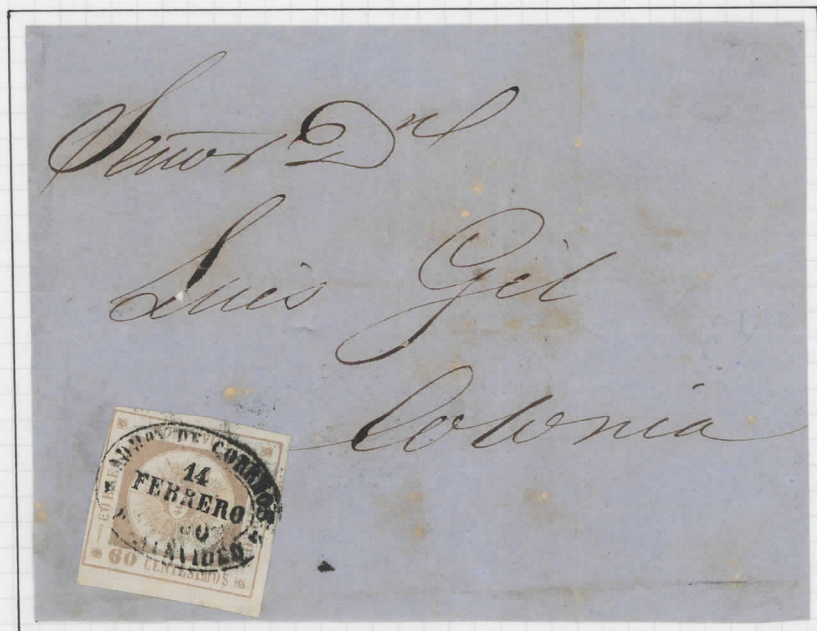 Señor Dn
Luis Gil
Colonia
ADMON DE CORREOS
14
FEBRERO
60
MONTEVIDEO
60 CENTESIMOS